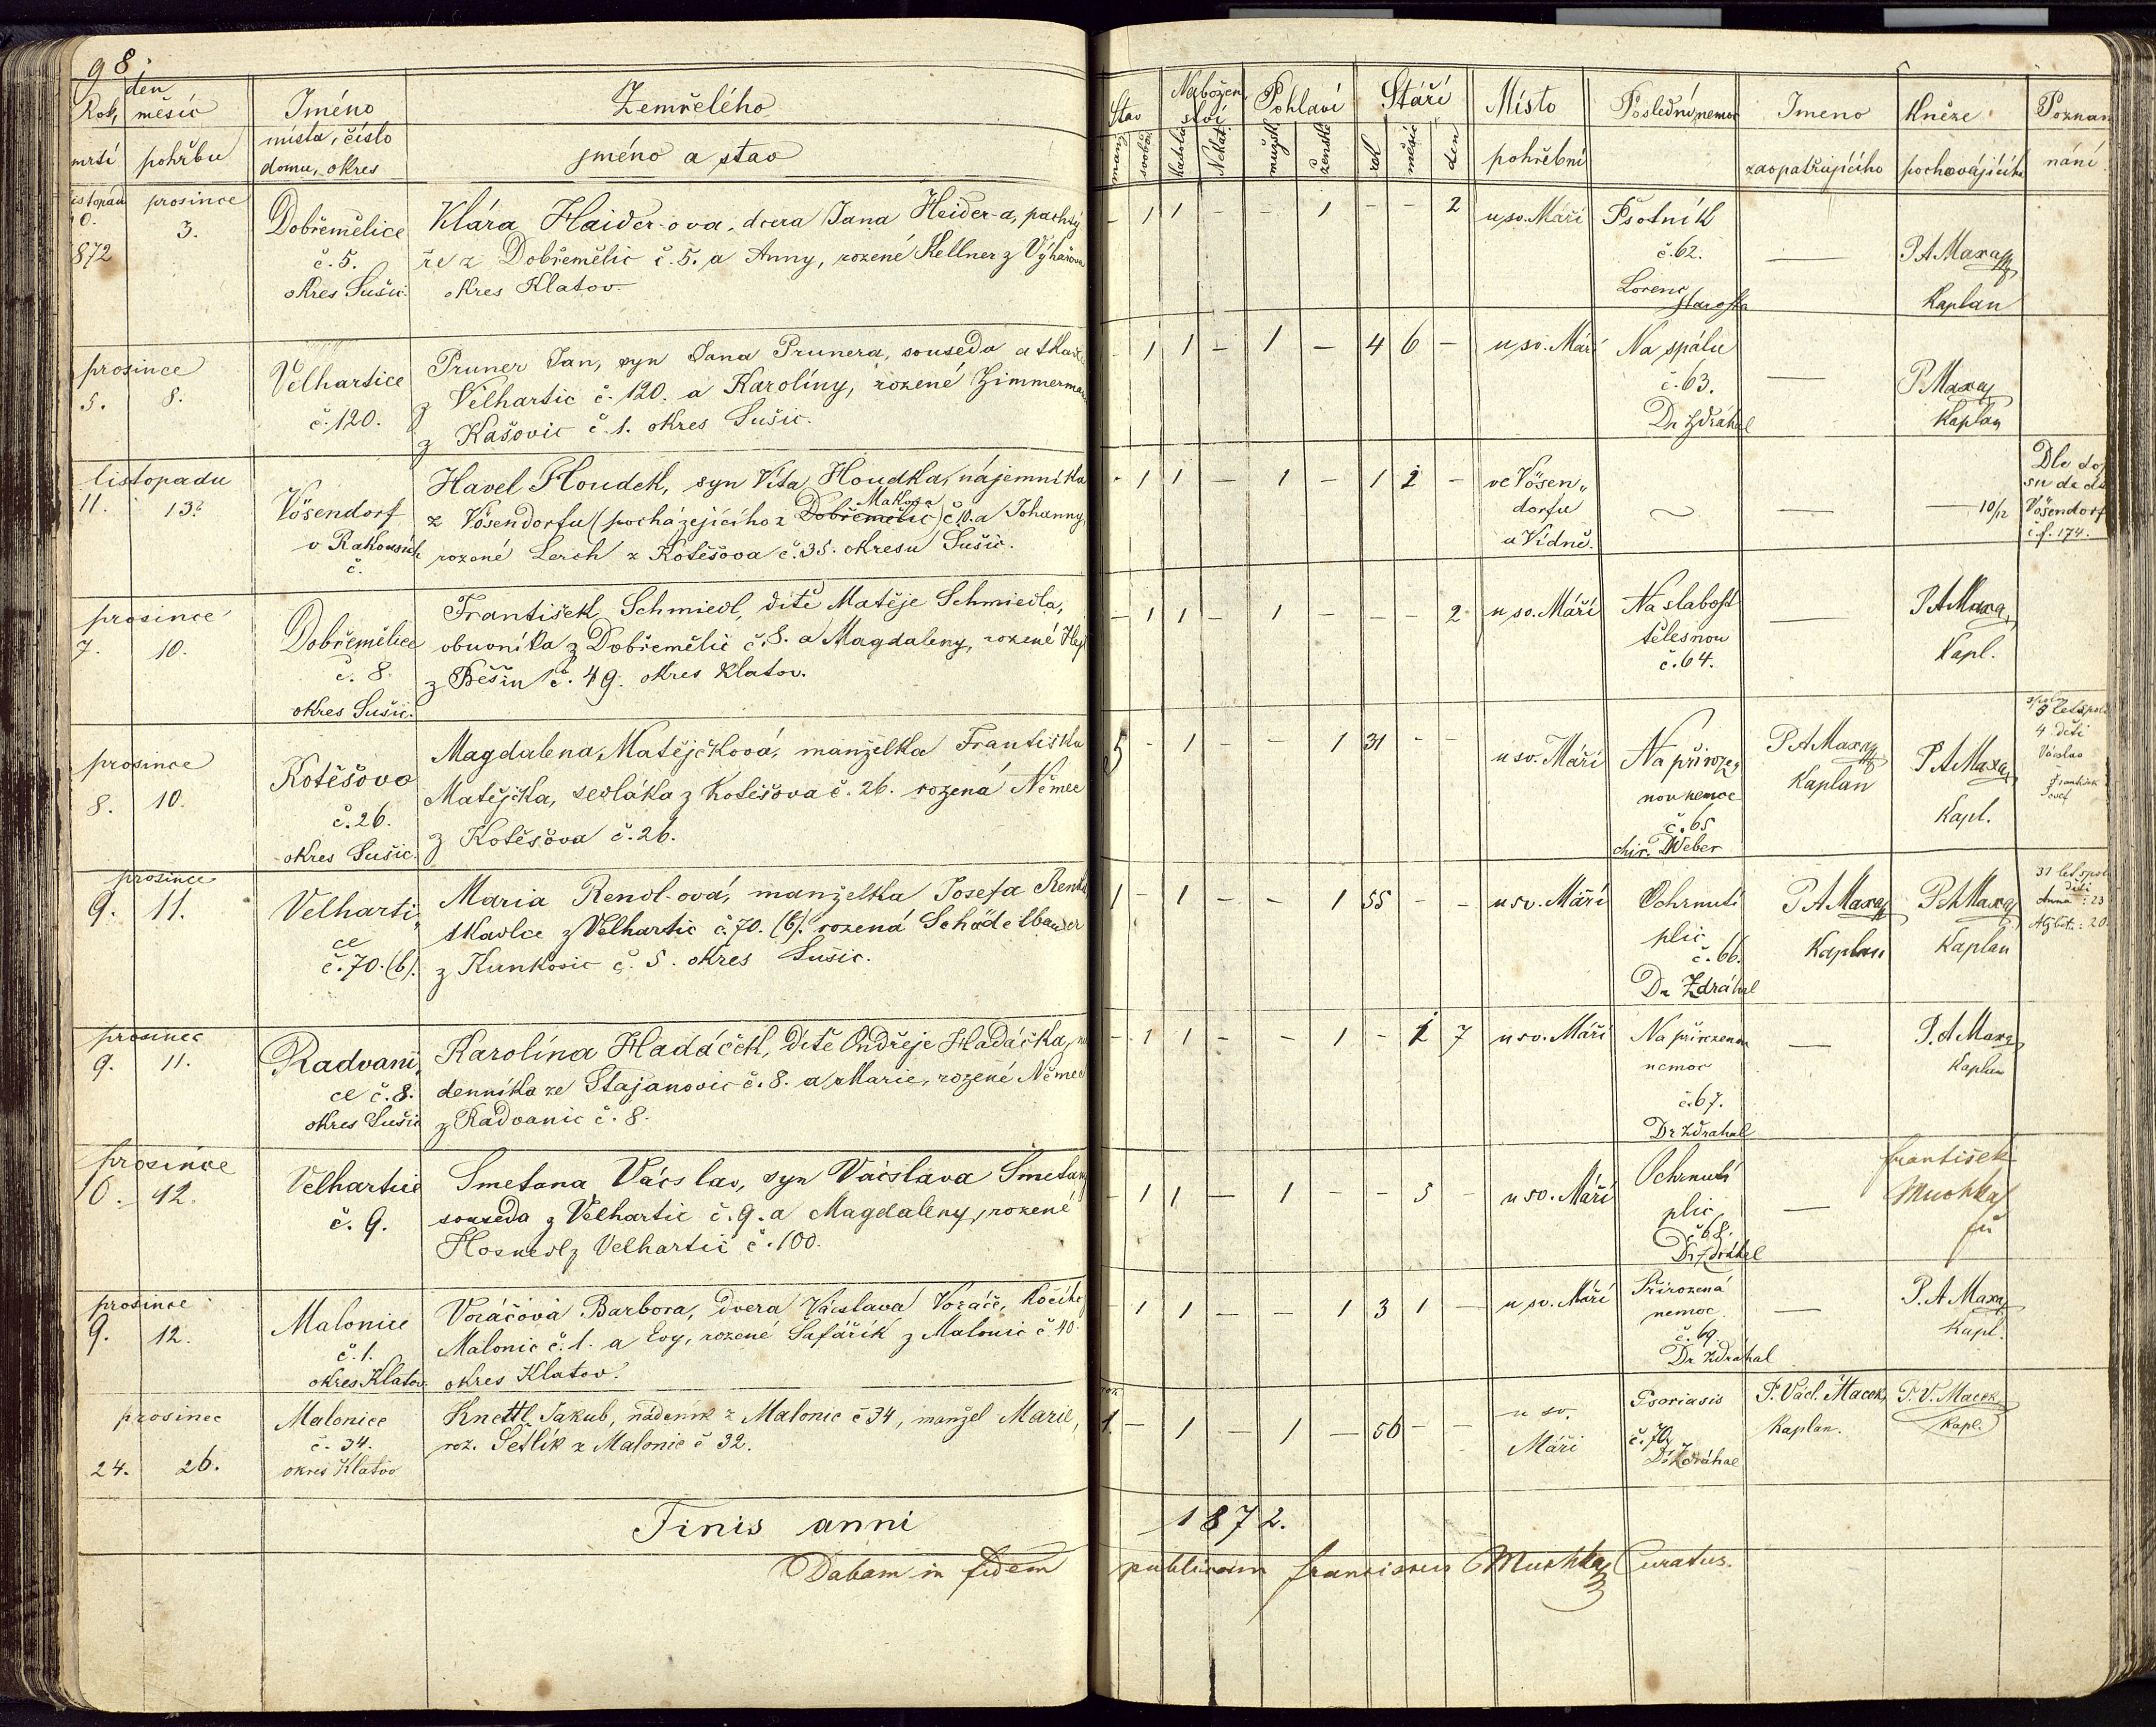 98.
den
Rok, měsíc
mrtí pohřbu
Jméno
místa, číslo
domu, okres
Zemřelého
jméno a stav
Stav
svobod.
Nábožen
ství
katolic.
Nekat.
Pohlaví
mužsk.
ženské
Stáří
rok
měsíc
den
Místo
pohřební
Poslední nemoc
Jmeno
zaopatřujícího
kněze
pochovájícího
Poznam
nání
listopad prosince
3.
872
Dobřemělice
č. 5.
okres Sušic.
Klára Haider-ova, dcera Jana Heider-a, pachtý
ře z Dobřemělic č. 5. a Anny, rozené Kellner z Výhařova
okres Klatov.
- 1 1 - - 1 - - 2
u sv. Máří
Psotník
č. 62.
Lorenc
starosta
—
P. A Maxa
Kaplan
prosince
5. 8.
Velhartice
č. 120.
Pruner Jan, syn Jana Prunera, souseda a tkalce
z Velhartic č. 120. a Karolíny, rozené Zimmerman
z Kašovic č. 1. okres Sušic.
- 1 1 - 1 - 4 6 -
u sv. Máří
Na spálu
č. 63.
Dr Zdráhal
—
P Maxa
Kaplan
listopadu
11. 13.
Vösendorf
v Rakousích
č.
Havel Houdek, syn Víta Houdka, nájemníka
Makova
z Vösendorfu (pocházejícího z Dobřemělic) č. 10. a Johanny,
rozené Lerch z Kotěšova č. 35. okresu Sušic.
- 1 1 - 1 - 1 2 -
ve Vösen„
dorfu
u Vídně.
—
10/12
Dle do
Vösendorf
č. f. 174.
prosince
7. 10.
Dobřemělice
č. 8.
okres Sušic.
František Schmiedl, dítě Matěje Schmiedla,
obuvníka z Dobřemělic č. 8. a Magdaleny, rozené
z Běšin č. 49. okres Klatov.
- 1 1 - 1 - - - 2
u sv. Máří
Na slabost
tělesnou
č. 64.
—
P. A Maxa
Kapl.
prosince
8. 10.
Kotěšovo
č. 26.
okres Sušic.
Magdalena Matějčková, manželka Františka
Matějčka, sedláka z Kotěšova č. 26. rozená Němec
z Kotěšova č. 26.
- 1 - - 1 31 - -
u sv. Máří
Na přiroze„
nou nemoc
č. 65
chir. Weber
P A Maxa
Kaplan
P A Maxa
Kapl.
4 děti
Václav
František
Josef
prosince
9. 11.
Velharti„
ce
č. 70. (b).
Maria Rendl-ová, manželka Josefa Rendl
tkadlce z Velhartic č. 70. (b). rozená Schödelbauer
z Kunkovic č. 5. okres Sušic.
1 - 1 - - 1 55 - -
u sv. Máří
Ochrnutí
plic
č. 66.
Dr Zdráhal
P A Maxa
Kaplan
P A Maxa
Kaplan
31 let spol
děti
Anna : 23
Alžbět. : 20
prosinec
9. 11.
Radvani„
ce č. 8.
okres Sušic
Karolína Hadáček, dítě Ondřeje Hadáčka,
denníka ze Stajanovic č. 8. a Marie, rozené Němec
z Radvanic č. 8.
- 1 1 - - 1 - 1 7
u sv. Máří
Na přirozenou
nemoc
č. 67.
Dr Zdrahal
—
P. A Maxa
Kaplan
prosince
10. 12.
Velhartice
č. 9.
Smetana Vácslav, syn Vácslava Smetany
souseda z Velhartic č. 9. a Magdaleny, rozené
Hosnedl z Velhartic č. 100.
- 1 1 - 1 - - 5 -
u sv. Máří
Ochrnutí
plic
č 68.
Dr Zdráhal
—
František
Muchka
prosince
9. 12.
Malonice
č. 1.
okres Klatov.
Voráčová Barbora, dcera Vácslava Voráče, kočího
Malonic č. 1. a Evy, rozené Šafářík z Malonic č. 40.
okres Klatov.
- 1 1 - - 1 3 1 -
u sv. Máří
Přirozená
nemoc
č. 69.
Dr Zdráhal
—
P. A Maxa
Kapl.
prosinec
24. 26.
Malonice
č. 34.
okres Klatov
Knettl Jakub, nádeník z Malonic č 34, manžel Marie,
roz. Šetlík z Malonic č 32.
1. - 1 - 1 - 56 - -
u sv.
Máři
Psoriasis
č. 70.
Dr Zdráhal
P. Václ. Macek,
Kaplan.
P. V. Macek
Kapl.
Finis anni 1872.
Dabam in fidem publicam Franciscus Muchka Curatus.